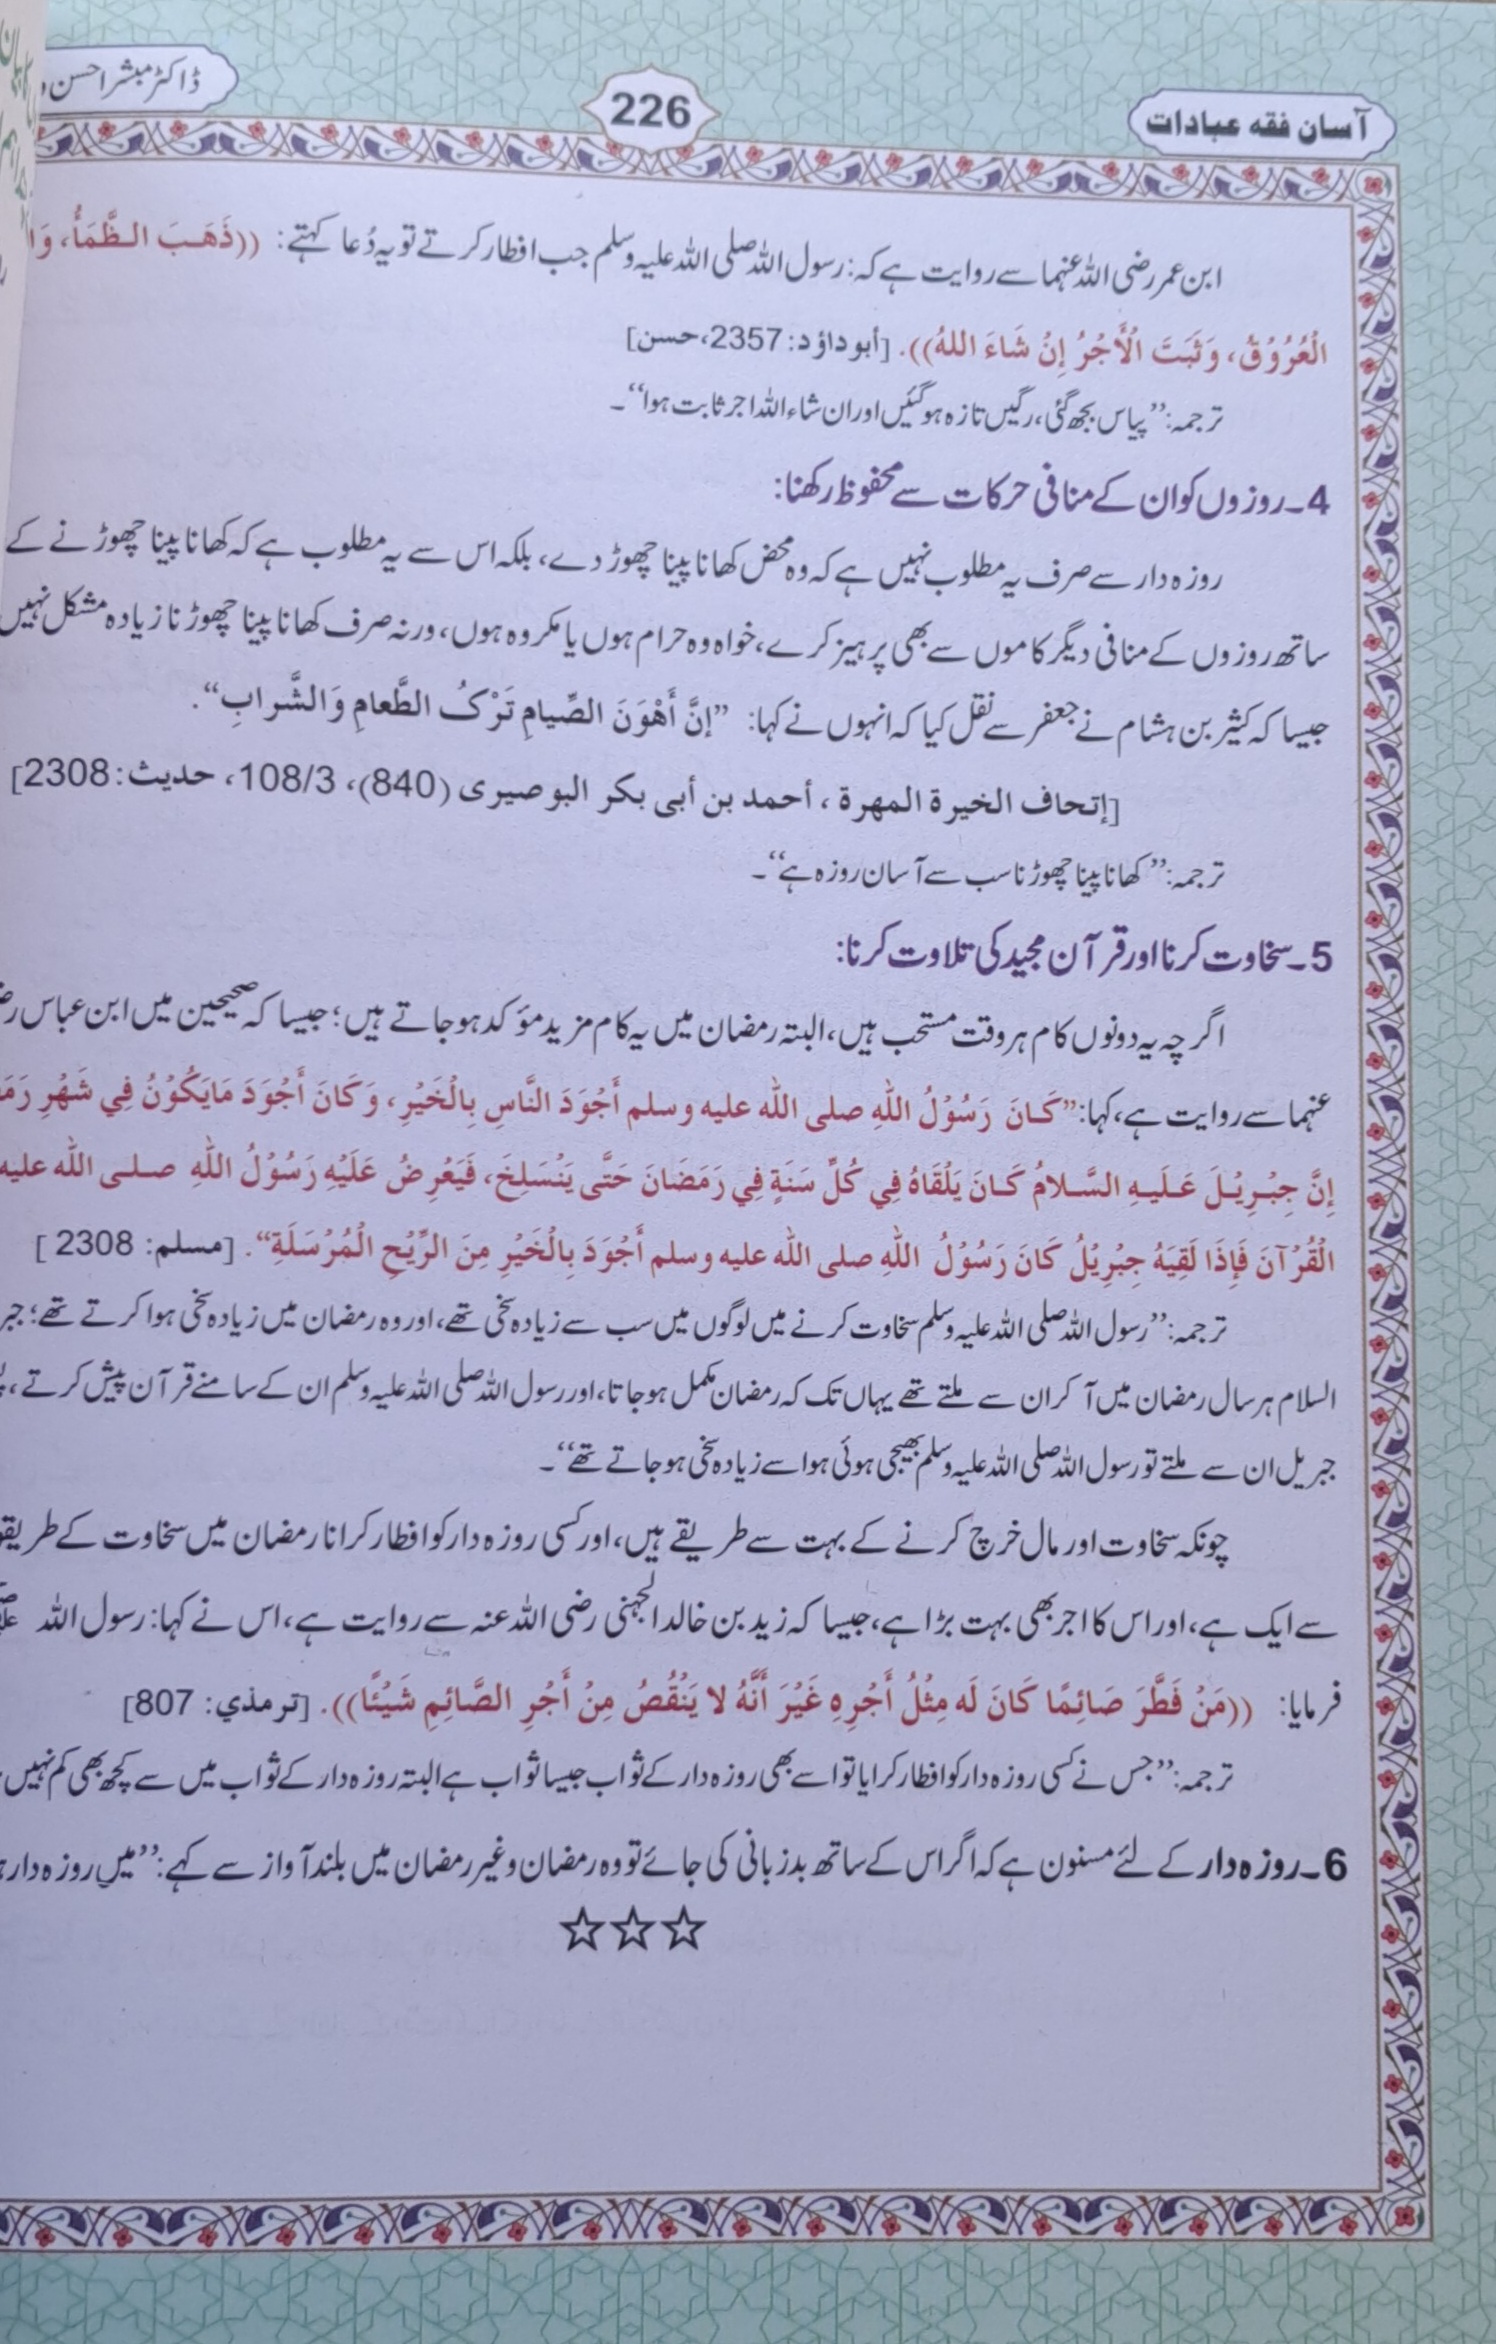 آسان فقہ عبادات
226
ڈاکٹر مبشر احسن
ابن عمر رضی اللہ عنہما سے روایت ہے کہ: رسول اللہ صلی اللہ علیہ وسلم جب افطار کرتے تو یہ دُعا کہتے: ((ذَهَبَ الظَّمَأُ، وَا
الْعُرُوْقُ، وَثَبَتَ الْأَجْرُ إِنْ شَاءَ اللهُ)). [أبو داؤد: 2357، حسن]
ترجمہ: ”پیاس بجھ گئی، رگیں تازہ ہوگئیں اور ان شاء اللہ اجر ثابت ہوا“۔
4۔ روزوں کو ان کے منافی حرکات سے محفوظ رکھنا:
روزہ دار سے صرف یہ مطلوب نہیں ہے کہ وہ محض کھانا پینا چھوڑ دے، بلکہ اس سے یہ مطلوب ہے کہ کھانا پینا چھوڑنے کے
ساتھ روزوں کے منافی دیگر کاموں سے بھی پرہیز کرے، خواہ وہ حرام ہوں یا مکروہ ہوں، ورنہ صرف کھانا پینا چھوڑنا زیادہ مشکل نہیں
جیسا کہ کثیر بن ہشام نے جعفر سے نقل کیا کہ انہوں نے کہا: ”إِنَّ أَهْوَنَ الصِّيامِ تَرْكُ الطَّعامِ وَالشَّرابِ“.
[إتحاف الخيرة المهرة ، أحمد بن أبی بکر البوصیری (840)، 108/3، حدیث: 2308]
ترجمہ: ”کھانا پینا چھوڑنا سب سے آسان روزہ ہے“۔
5۔ سخاوت کرنا اور قرآن مجید کی تلاوت کرنا:
اگرچہ یہ دونوں کام ہر وقت مستحب ہیں، البتہ رمضان میں یہ کام مزید مؤکد ہو جاتے ہیں؛ جیسا کہ صحیحین میں ابن عباس
عنہما سے روایت ہے، کہا: ”كَانَ رَسُوْلُ اللهِ صلى الله عليه وسلم أَجْوَدَ النَّاسِ بِالْخَيْرِ، وَكَانَ أَجْوَدَ مَايَكُوْنُ فِي شَهْرِ رَمَ
إِنَّ جِبْرِيْلَ عَلَيهِ السَّلامُ كَانَ يَلْقَاهُ فِي كُلِّ سَنَةٍ فِي رَمَضَانَ حَتَّى يَنْسَلِخَ، فَيَعْرِضُ عَلَيْهِ رَسُوْلُ اللهِ صلى الله عليه
الْقُرْآنَ فَإِذَا لَقِيَهُ جِبْرِيْلُ كَانَ رَسُوْلُ اللهِ صلى الله عليه وسلم أَجْوَدَ بِالْخَيْرِ مِنَ الرِّيْحِ الْمُرْسَلَةِ“. [مسلم: 2308 ]
ترجمہ: ”رسول اللہ صلی اللہ علیہ وسلم سخاوت کرنے میں لوگوں میں سب سے زیادہ سخی تھے، اور وہ رمضان میں زیادہ سخی ہوا کرتے تھے؛ جبر
السلام ہر سال رمضان میں آ کر ان سے ملتے تھے یہاں تک کہ رمضان مکمل ہو جاتا، اور رسول اللہ صلی اللہ علیہ وسلم ان کے سامنے قرآن پیش کرتے،
جبریل ان سے ملتے تو رسول اللہ صلی اللہ علیہ وسلم بھیجی ہوئی ہوا سے زیادہ سخی ہو جاتے تھے“۔
چونکہ سخاوت اور مال خرچ کرنے کے بہت سے طریقے ہیں، اور کسی روزہ دار کو افطار کرانا رمضان میں سخاوت کے طریقو
سے ایک ہے، اور اس کا اجر بھی بہت بڑا ہے، جیسا کہ زید بن خالد الجہنی رضی اللہ عنہ سے روایت ہے، اس نے کہا: رسول اللہ
فرمایا: ((مَنْ فَطَّرَ صَائِمًا كَانَ لَه مِثْلُ أَجْرِهِ غَيْرَ أَنَّهُ لا يَنْقُصُ مِنْ أَجْرِ الصَّائِمِ شَيْئًا)). [ترمذي: 807]
ترجمہ: ”جس نے کسی روزہ دار کو افطار کرایا تو اسے بھی روزہ دار کے ثواب جیسا ثواب ہے البتہ روزہ دار کے ثواب میں سے کچھ بھی کم نہیں
6۔ روزہ دار کے لئے مسنون ہے کہ اگر اس کے ساتھ بدزبانی کی جائے تو وہ رمضان وغیر رمضان میں بلند آواز سے کہے: ”میں روزہ دار
☆☆☆